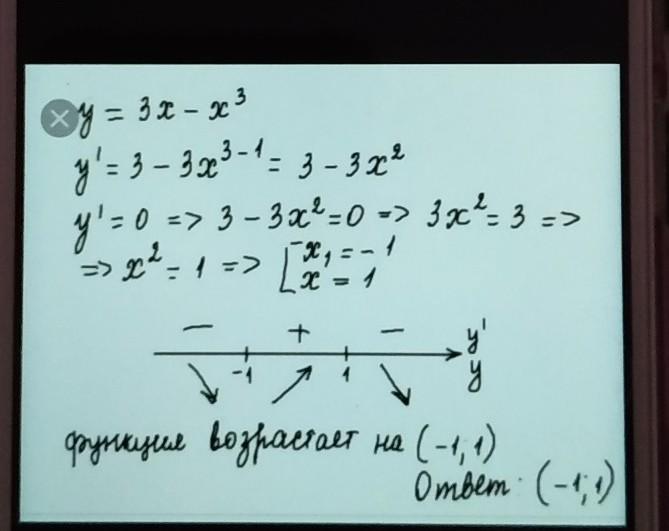 y = 3x - x³
y' = 3 - 3x³⁻¹ = 3 - 3x²
y' = 0 => 3 - 3x² = 0 => 3x² = 3 =>
=> x² = 1 => [ x₁ = -1
x = 1
- + - y'
-1 1 y
функция возрастает на (-1; 1)
Ответ: (-1; 1)